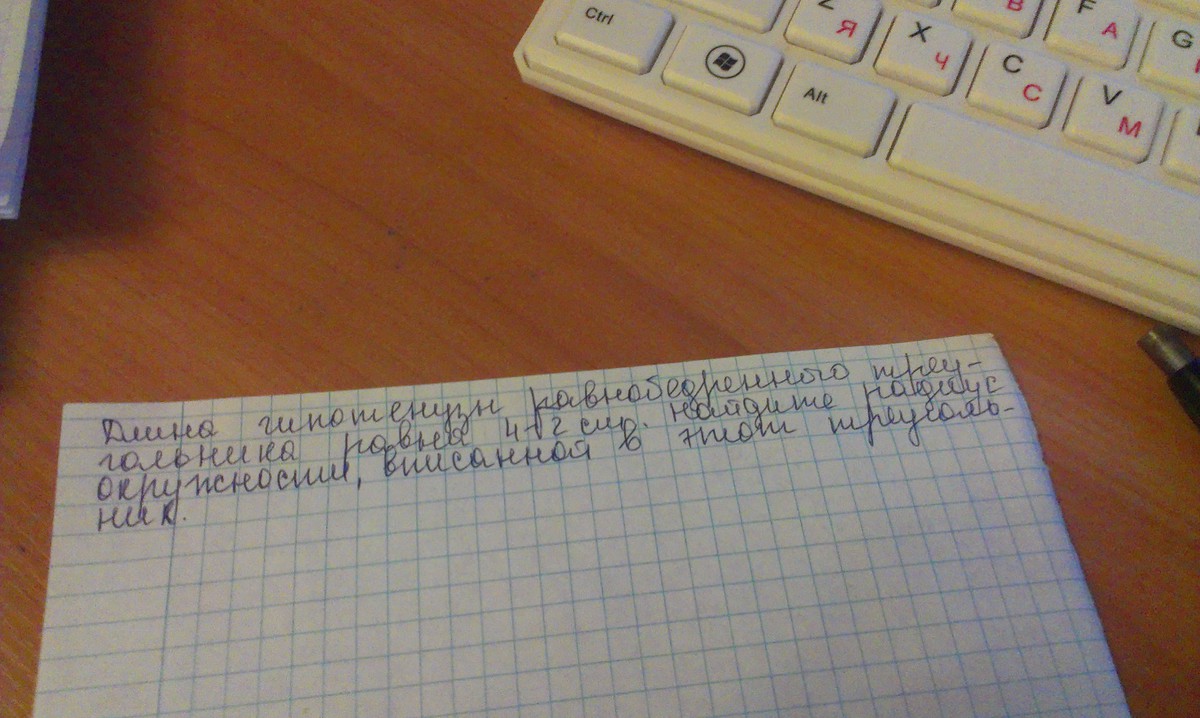 Ctrl
Alt
Z Я
X Ч
C С
V М
В
F А
G
Длина гипотенузы равнобедренного треу-
гольника равна 4√2 см. найдите радиус
окружности, вписанной в этот треуголь-
ник.